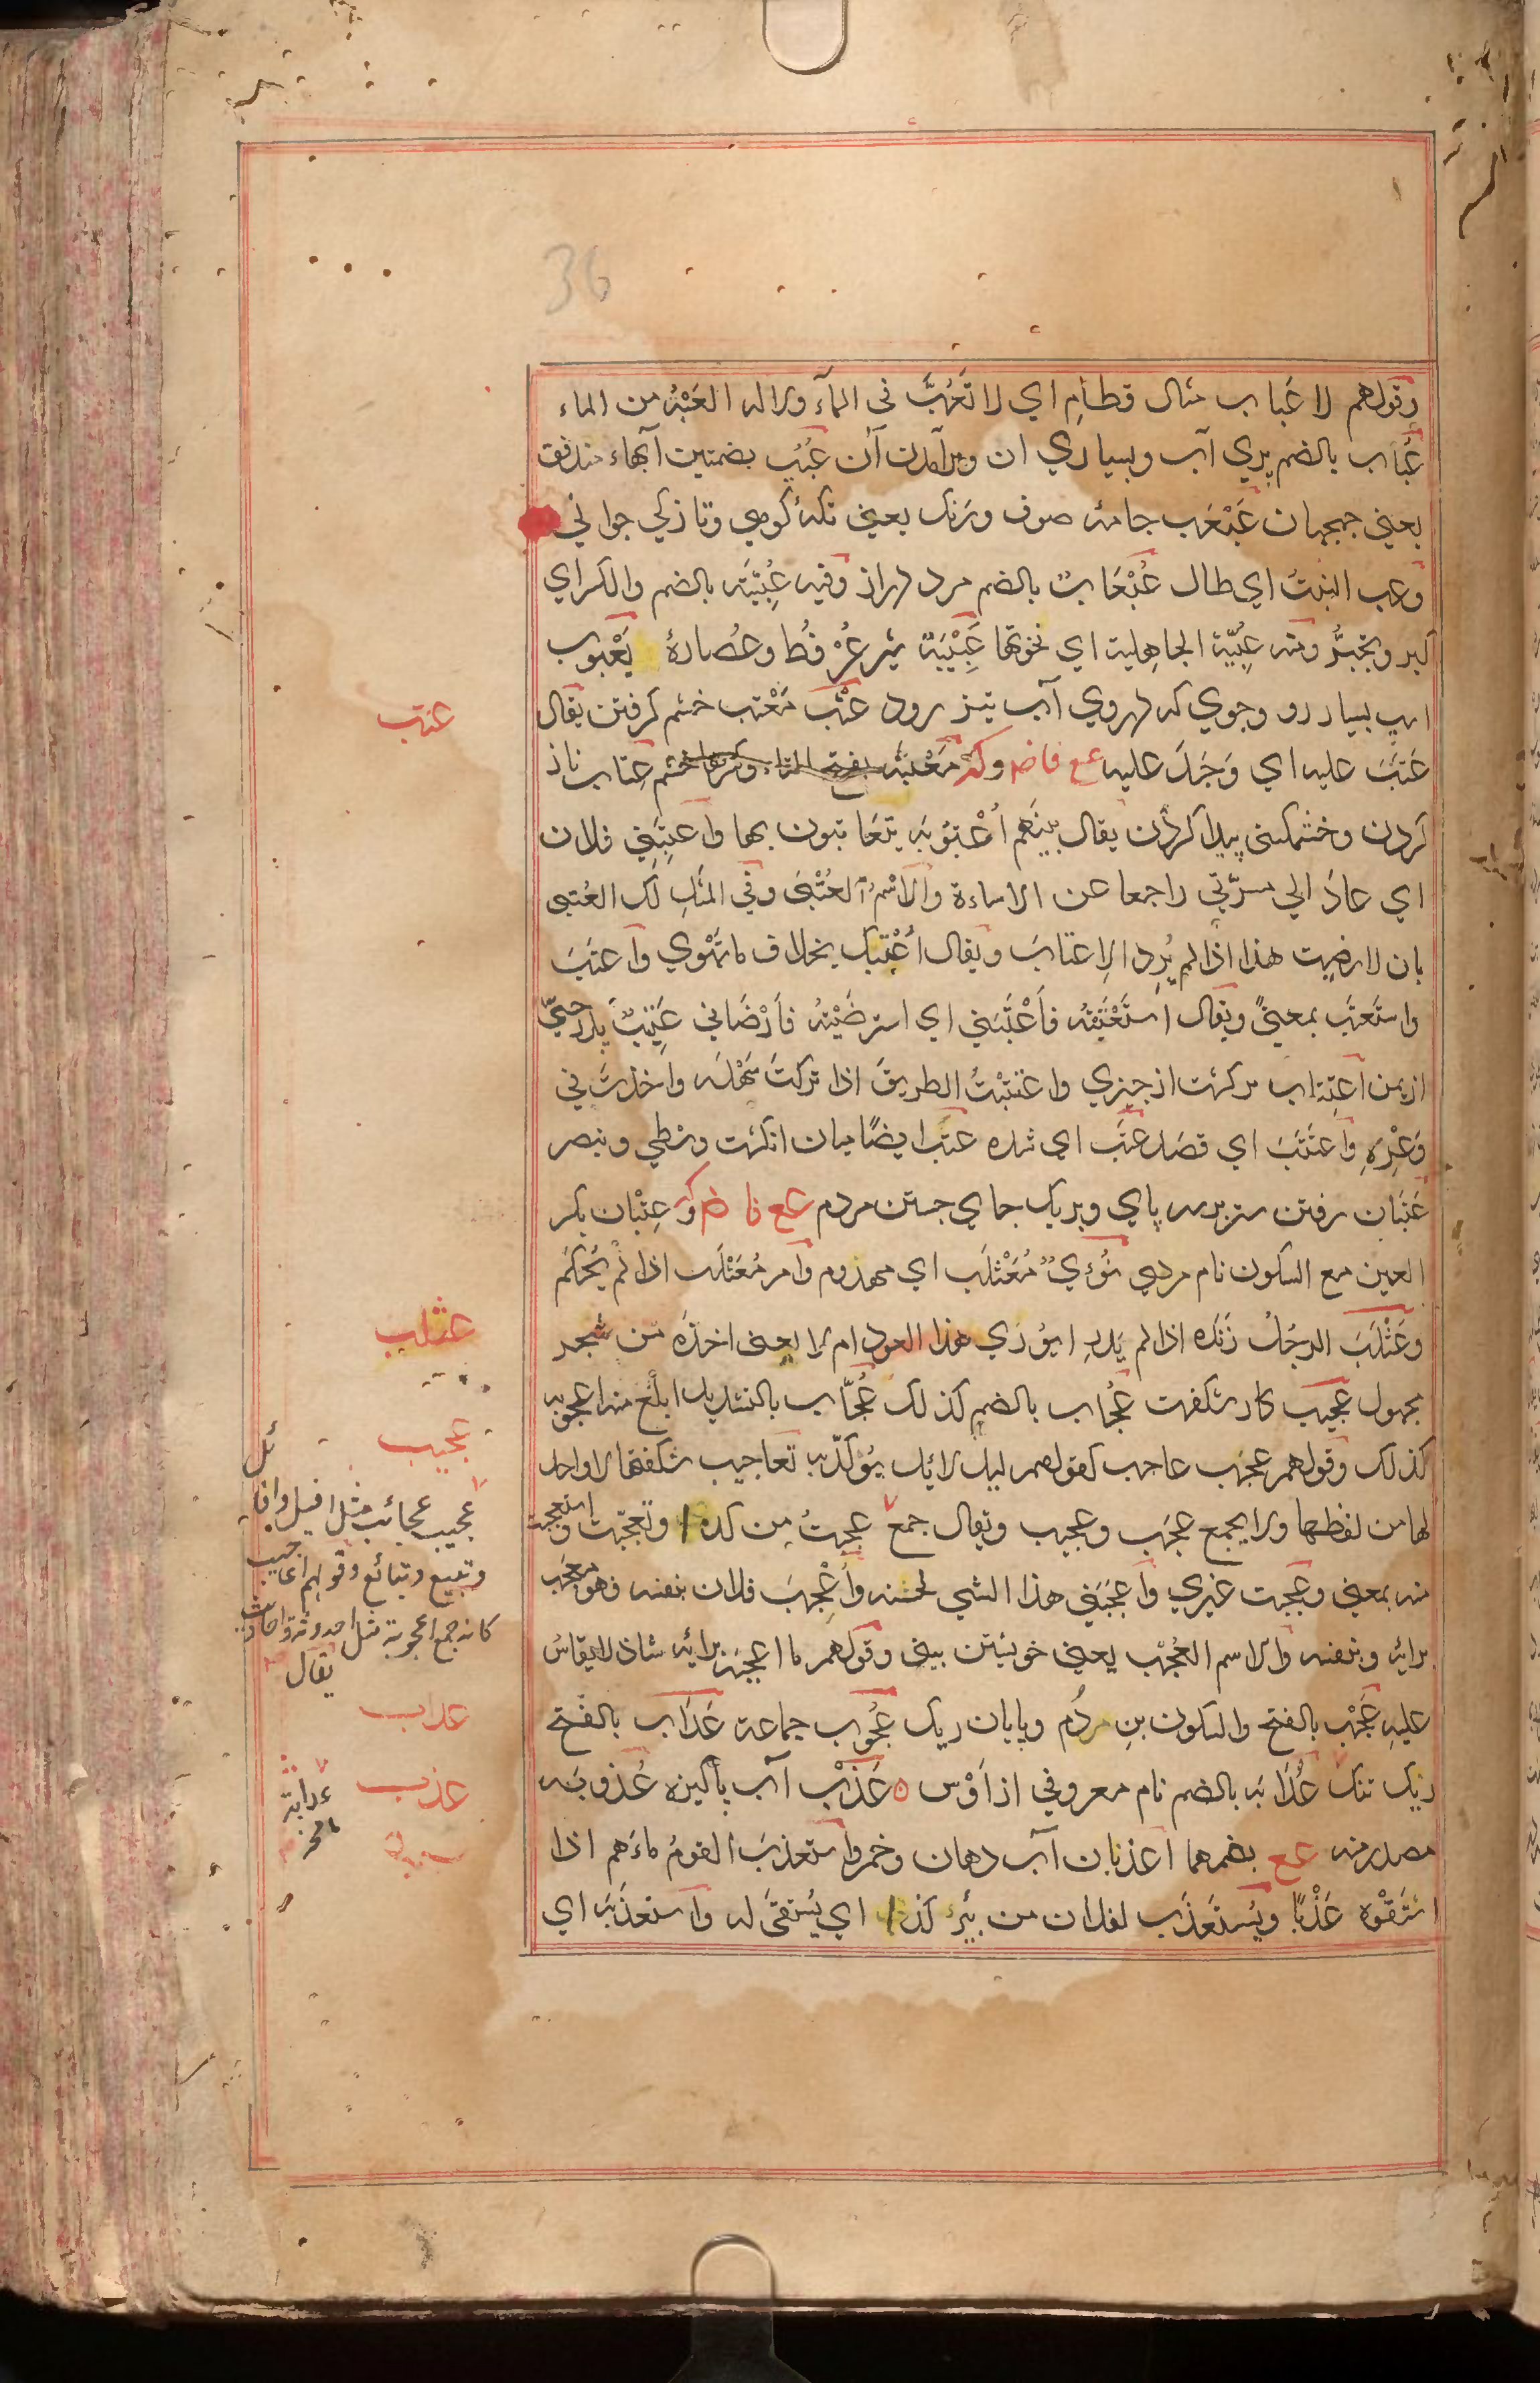 36
وقولهم لا عَباب مثال قطامِ اي لا تَعُبَّ في المآء ولا له العَبْبُ من الماء
عُباب بالضم پري آب وبسياري ان وبرآمدن آن عُبُب بضمتين آبهاء متدفق
يعني جهجهان عَبْعَب جامهٔ صوف وتنك يعني تكهٔ كومي وتازكي جواني
وعب النبتُ اي طال عُبْعَابٌ بالضم مرد دراز وفيه عُبِّيَّة بالضم والكسر اي
كبر وتجبُّر ومنه عِبِّيّة الجاهلية اي نخوتها عَبِيْبَة شير عُرْفُط وعُصارهٔ يَعْبوب
اسپ بسيار رو وجوي كه دروي آب تيز رود عَتْب مَعْتَب خشم كرفتن يقال
عَتَبَ عليه اي وَجَدَ عليه مع فا ضم وكـ مَعْتبَة بفتح التاء وكسرها خشم عِتاب ناز
كردن وخشمكني پيدا كردن يقال بينهم أُعْتُوبَة يتعاتبون بها وأعتبَني فلان
اي عادَ الي مسرّتي راجعا عن الاساءة والاسْمُ العُتْبى وفي المثل لك العُتبى
بان لا رضيت هذا اذا لم يُرِد الاِعتابَ ويقال أُعْتِبك بخلاف ما تهْوي وأعتَبَ
واستَعتَب بمعنىً ويقال استَعْتَبْتُه فأَعْتَبَني اي استرضَيْتُه فأرْضَاني عَتِيْبٌ پدر حيّ
از يمن اعتِتاب بركشت از چيزي واعتتبْتُ الطريقَ اذا تركتَ سَهْلَه واخذتَ في
وَعْرِهِ واعتَتَبَ اي قصَد عتَب اي شده عتَب ايضًا ميان انكشت وسطي وبنصر
عَتَبان رفتن ستر برسه پاي وبريك جاي جستن مردم مع فا ضم وكـ عِتْبان بكسر
العين مع السكون نام مردي نُؤيٌ مُعَثْلَب اي مهذوم وامر مُعَثْلَب اذا لم يُحْكَم
وعَثْلَبَ الرجُلُ زَندَه اذا لم يَدرِ ايُؤرِي هذا العود ام لا يعني اخذَه من شجر
مجهول عجيب كار شكفت عُجاب بالضم كذلك عُجّاب بالتشديد ابلغ منه اعجوبه
كذلك وقولهم عجَب عاجب كقولهم ليل لائل يُؤكّد به تَعاجيب شكفتها لا واحد
لها من لفظها ولا يجمع عجَب وعجيب ويقال جمع عجبتُ من كذا وتعجّبت واستعجبت
منه بمعني وعجّبت غيري وأعجَبَني هذا الشي لحسنه وأُعْجِبَ فلان بنفسه فهو معجَب
برايه وبنفسه والاسم العُجْب يعني خوبشتن بيني وقولهم ما اعجبَه برايه شاذ لا يقاسُ
عليه عَجْب بالفتح والسكون بنِ مردُم وپايان ريك عُجُوب جماعت عَدَاب بالفتح
ريك تنك عُدَابَه بالضم نام معروفي از اَوْس ه عَذْب آب پاكيزه عُذوبَه
مصدر منه مع بضمهما اعذبان آب دهان وخمر واستعذبَ القومُ ماءَهم اذا
استَقَوْه عَذْبًا ويُستَعذَب لفلان من بئر كذا اي يُستقى له واستعذَبَه اي
عتب
عثلب
عجيب
عجيب عجائب مثل افيل وافائل
وتبيع وتبائع وقولهم اعاجيب
كانه جمع اعجوبة مثل احدوثة واحاديث
يقال
عداب
عذب
عدابة